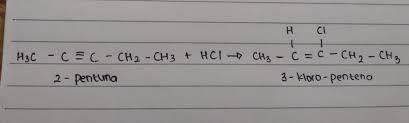 H Cl
H3C - C ≡ C - CH2 - CH3 + HCl → CH3 - C = C - CH2 - CH3
2 - pentuna 3 - kloro - pentena